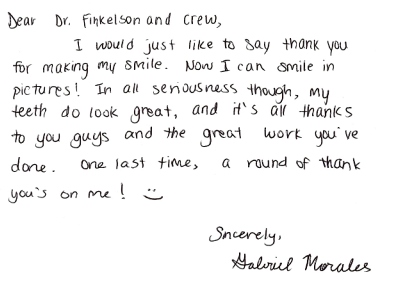 Dear Dr. Finkelson and crew,
I would just like to say thank you
for making my smile. Now I can smile in
pictures! In all seriousness though, my
teeth do look great, and it's all thanks
to you guys and the great work you've
done. One last time, a round of thank
you's on me! :)
Sincerely,
Gabriel Morales